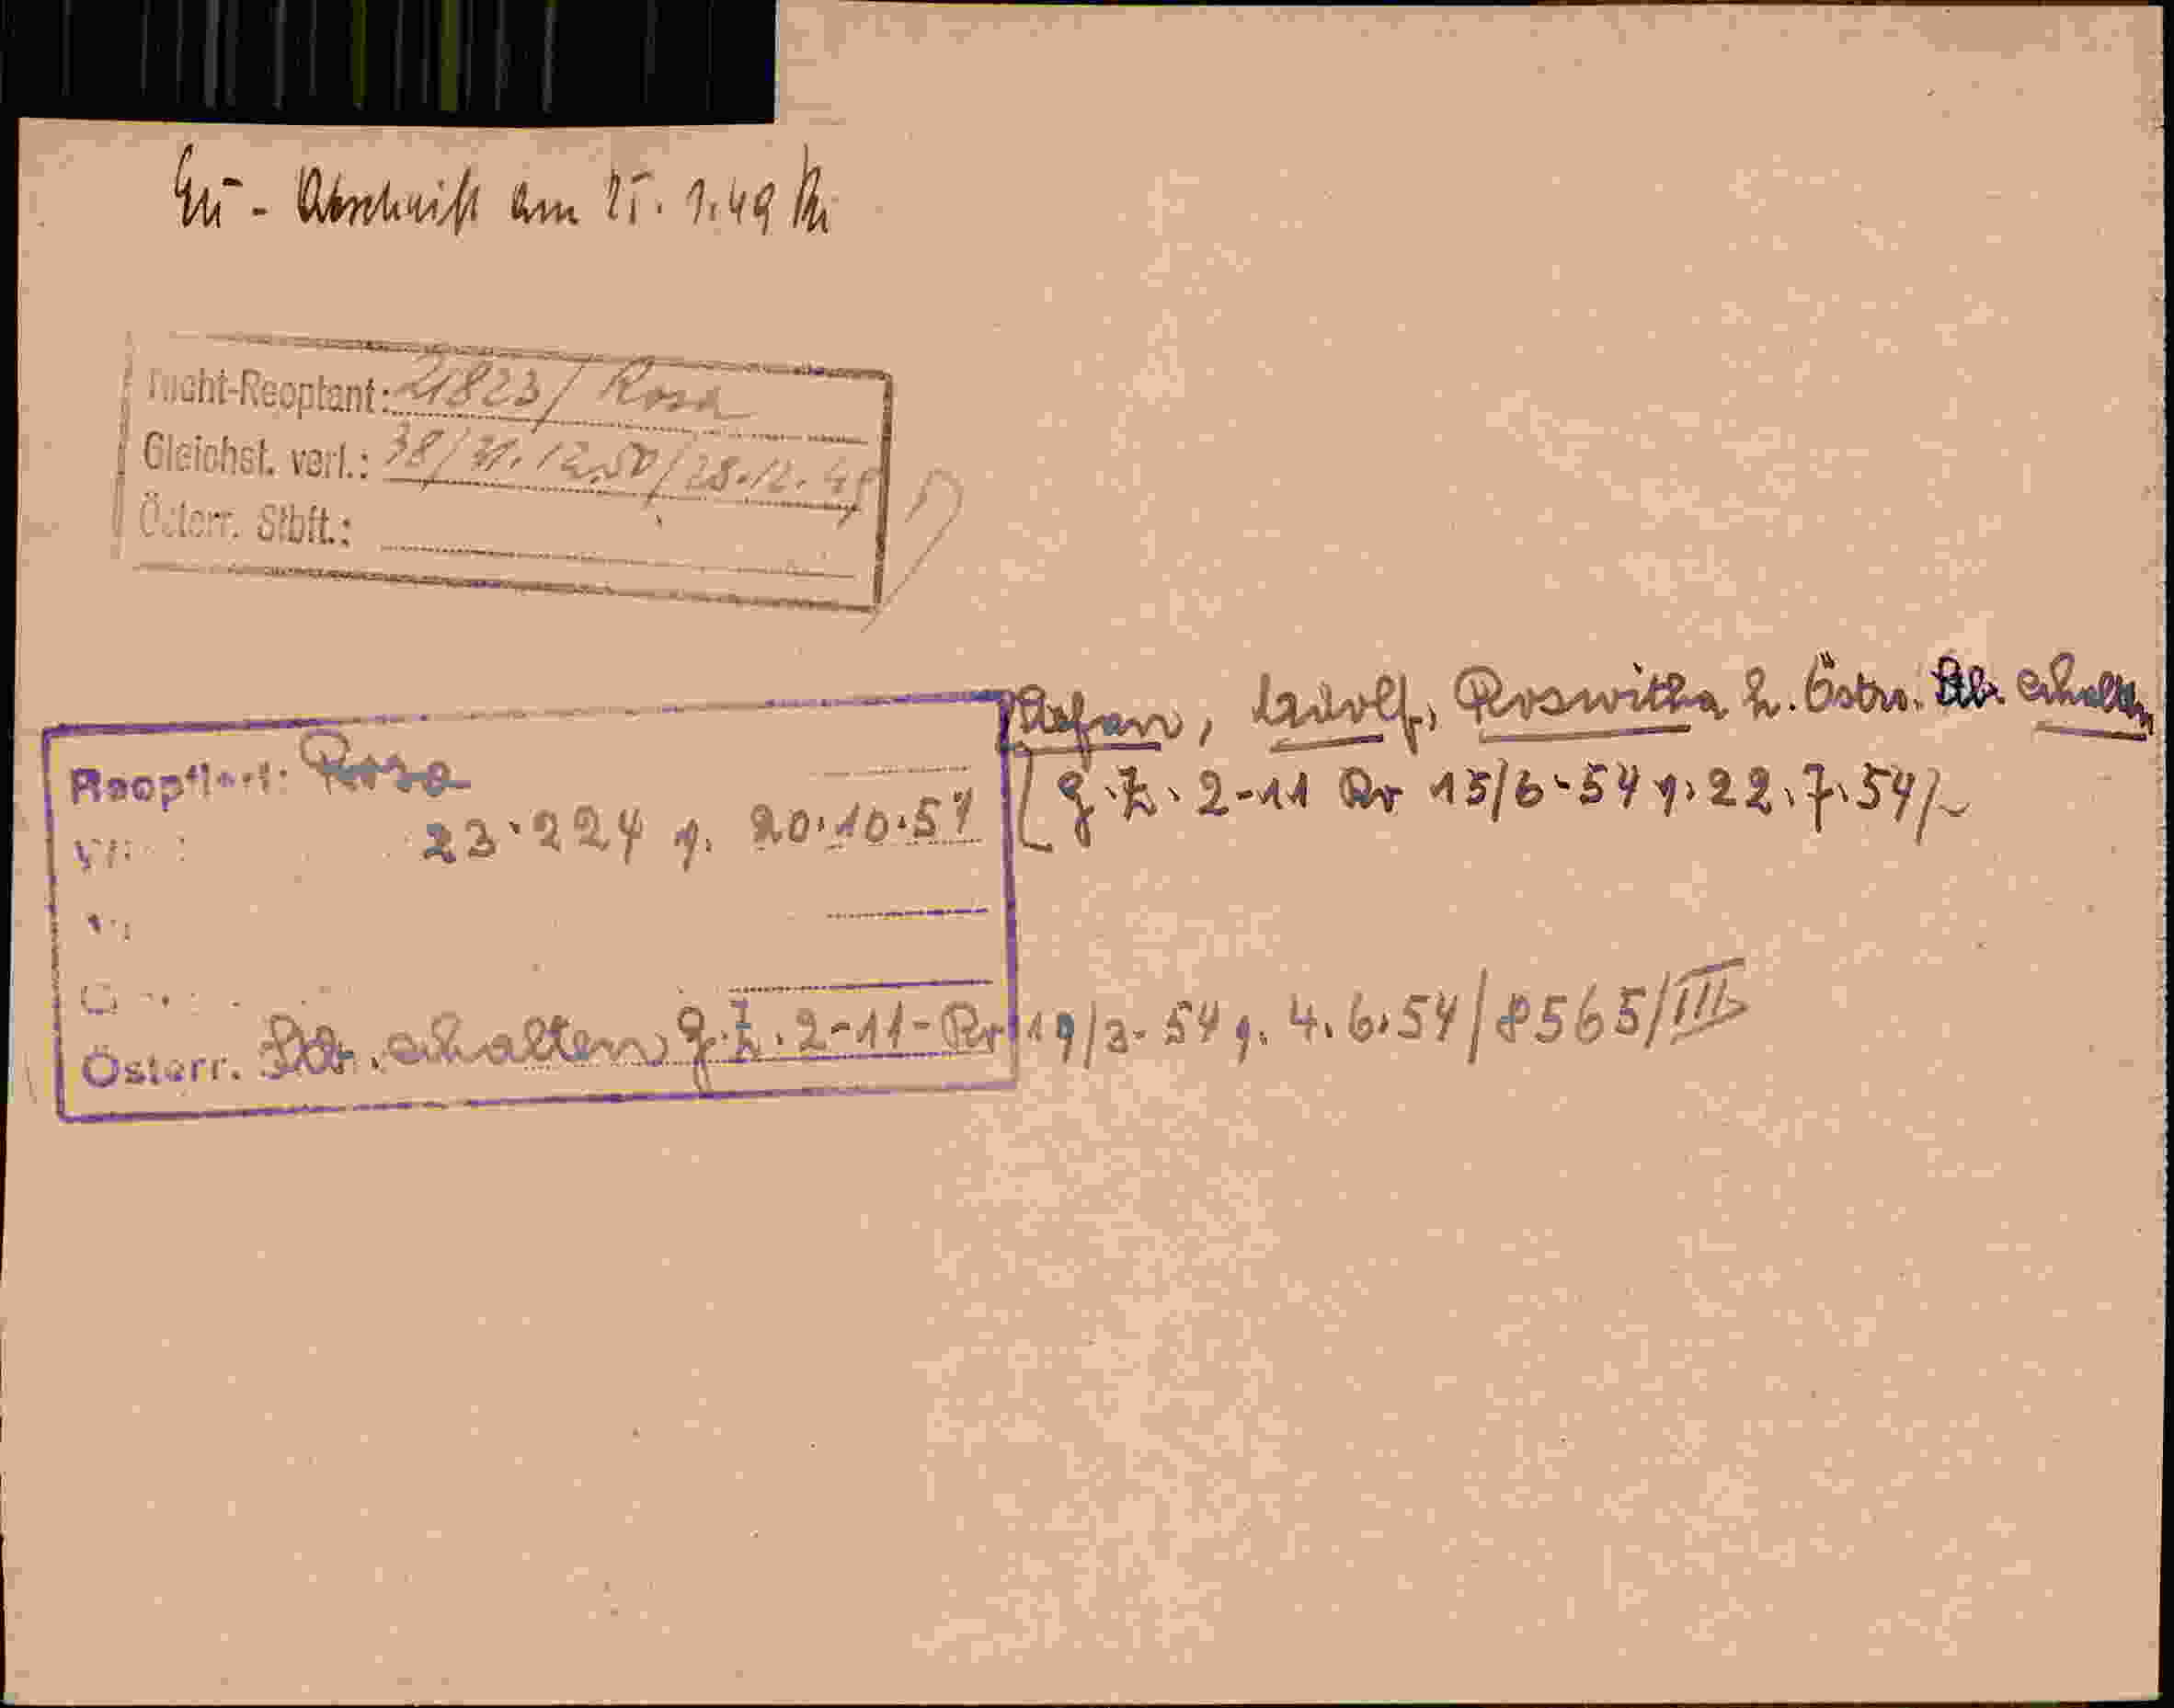 Abschnitt am 25. 1.49
Nicht-Reoptant: 21823/ Rosa
Gleichst. verl.: 38/31.12.50/28.12.48
Österr. Stbft.:
Stefan, Adolf, Roswitha h. Östrr. Stb. erhalten
[g.Z. 2-11 Rr 15/6-54 v. 22.7.54/
Reoptiert: Rosa
23.224 v. 20.10.51
Österr. Stb. erhalten g.Z. 2-11-Rr 19/3-54 v. 4.6.54/8565/III